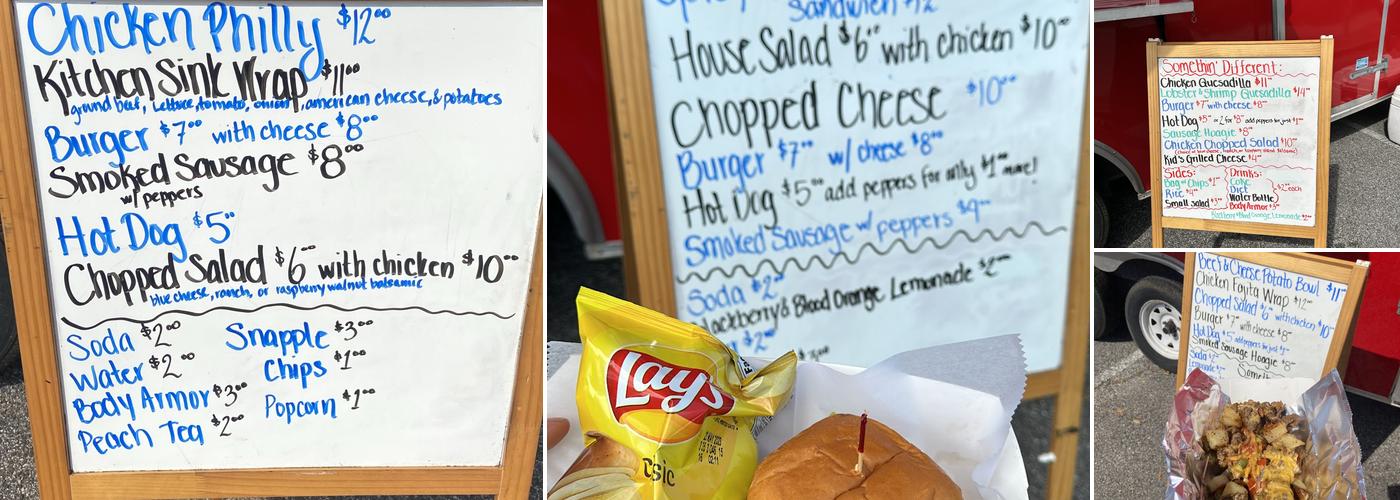 Chicken Philly $12.00
Kitchen Sink Wrap $11.00
ground beef, lettuce, tomato, onion, american cheese, & potatoes
Burger $7.00 with cheese $8.00
Smoked Sausage $8.00
w/ peppers
Hot Dog $5.00
Chopped Salad $6.00 with chicken $10.00
blue cheese, ranch, or raspberry walnut balsamic
Soda $2.00 Snapple $3.00
Water $2.00 Chips $1.00
Body Armor $3.00 Popcorn $1.00
Peach Tea $2.00
Spicy
Sandwich $12
House Salad $6.00 with chicken $10.00
Chopped Cheese $10.00
Burger $7.00 w/ cheese $8.00
Hot Dog $5.00 add peppers for only $1.00 more!
Smoked Sausage w/ peppers $9.00
Soda $2.00
Blackberry & Blood Orange Lemonade $2.00
$2.00
Lay's
Classic
Somethin' Different:
Chicken Quesadilla $11.00
Lobster & Shrimp Quesadilla $14.00
Burger $7.00 with cheese $8.00
Hot Dog $5.00 or 2 for $8.00 add peppers for just $1.00
Sausage Hoagie $8.00
Chicken Chopped Salad $10.00
Kid's Grilled Cheese $4.00
Sides: Drinks:
Bag of Chips $1.00 Coke
Rice $4.00 Diet
Small salad $3.00 Water Bottle $2.00 each
Body Armor $3.00
Blood Orange Lemonade $2.00
Beef & Cheese Potato Bowl $11.00
Chicken Fajita Wrap $12.00
Chopped Salad $6.00 with chicken $10.00
Burger $7.00 with cheese $8.00
Hot Dog $5.00 add peppers for just $1.00
Smoked Sausage Hoagie $8.00
Soda $2.00
Lemonade $2.00